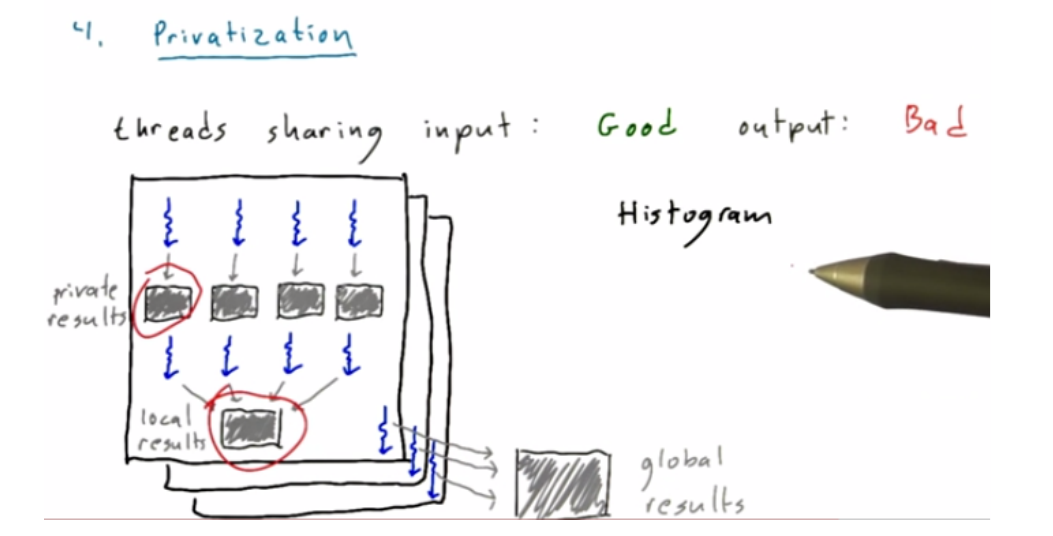 4. Privatization
threads sharing input: Good output: Bad
Histogram
private
results
local
results
global
results